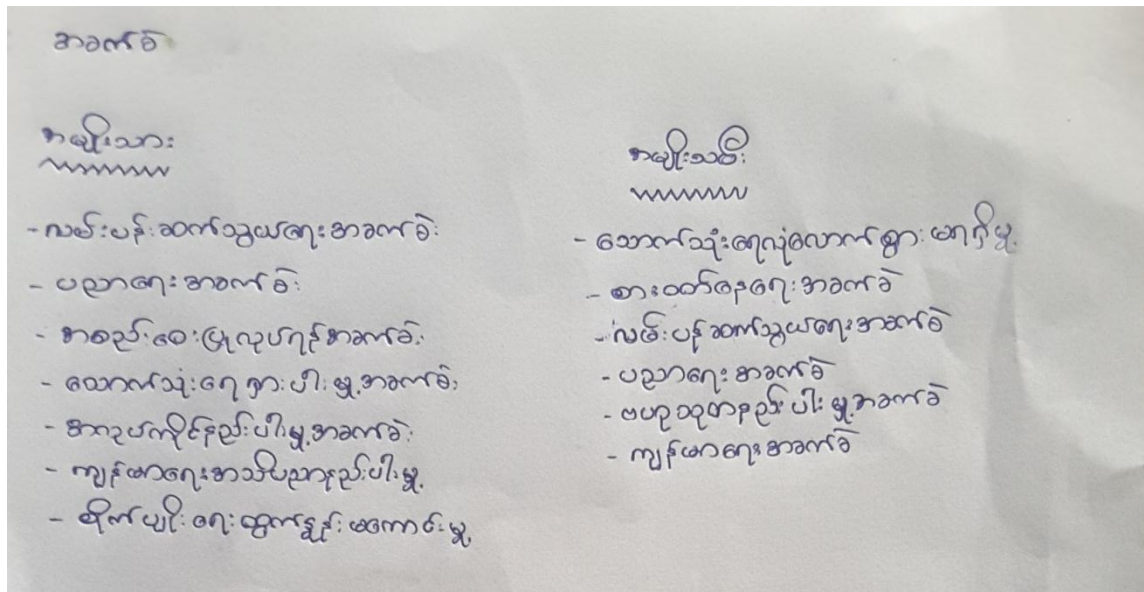 အခက်ခဲ
အမျိုးသား
-လမ်းပန်းဆက်သွယ်ရေးအခက်ခဲ
- ပညာရေးအခက်ခဲ
- အစည်းဝေးပြုလုပ်ရန်အခက်ခဲ
- သောက်သုံးရေရှားပါးမှု့အခက်ခဲ
- နည်းပါးမှု့အခက်ခဲ
- ကျန်မာရေးအသိပညာနည်းပါးမှု့
- စိုက်ပျိုးရေးထွက်နှုန်းမကောင်းမှု့
အမျိုးသမီး
- သောက်သုံးရေလုံလောက်စွာမရှိမှု့
- စားဝတ်နေရေးအခက်ခဲ
- လမ်းပန်ဆက်သွယ်ရေးအခက်ခဲ
- ပညာရေးအခက်ခဲ
- ဗဟုသုတနည်းပါးမှု့အခက်ခဲ
- ကျန်မာရေးအခက်ခဲ